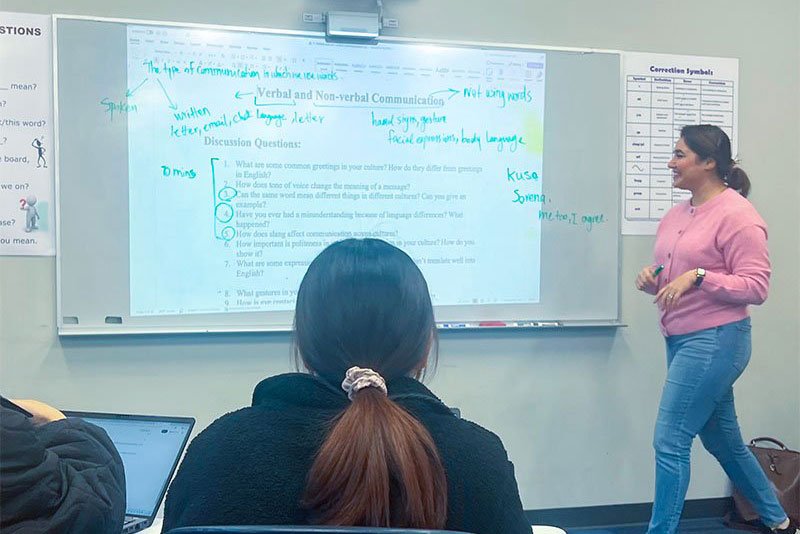 STIONS
mean?
t/this word?
board,
we on?
ase?
u mean.
The type of communication in which we use words
Spoken
written
letter, email, chat language, letter
Verbal and Non-verbal Communication
Not using words
hand signs, gesture
facial expressions, body language
Discussion Questions:
10 mins
1. What are some common greetings in your culture? How do they differ from greetings
in English?
2. How does tone of voice change the meaning of a message?
3. Can the same word mean different things in different cultures? Can you give an
example?
4. Have you ever had a misunderstanding because of language differences? What
happened?
5. How does slang affect communication across cultures?
6. How important is politeness in in your culture? How do you
show it?
7. What are some translate well into
English?
8. What gestures in
9. How is eye contact
Kuso
Sorena,
me too, I agree
Correction Symbols